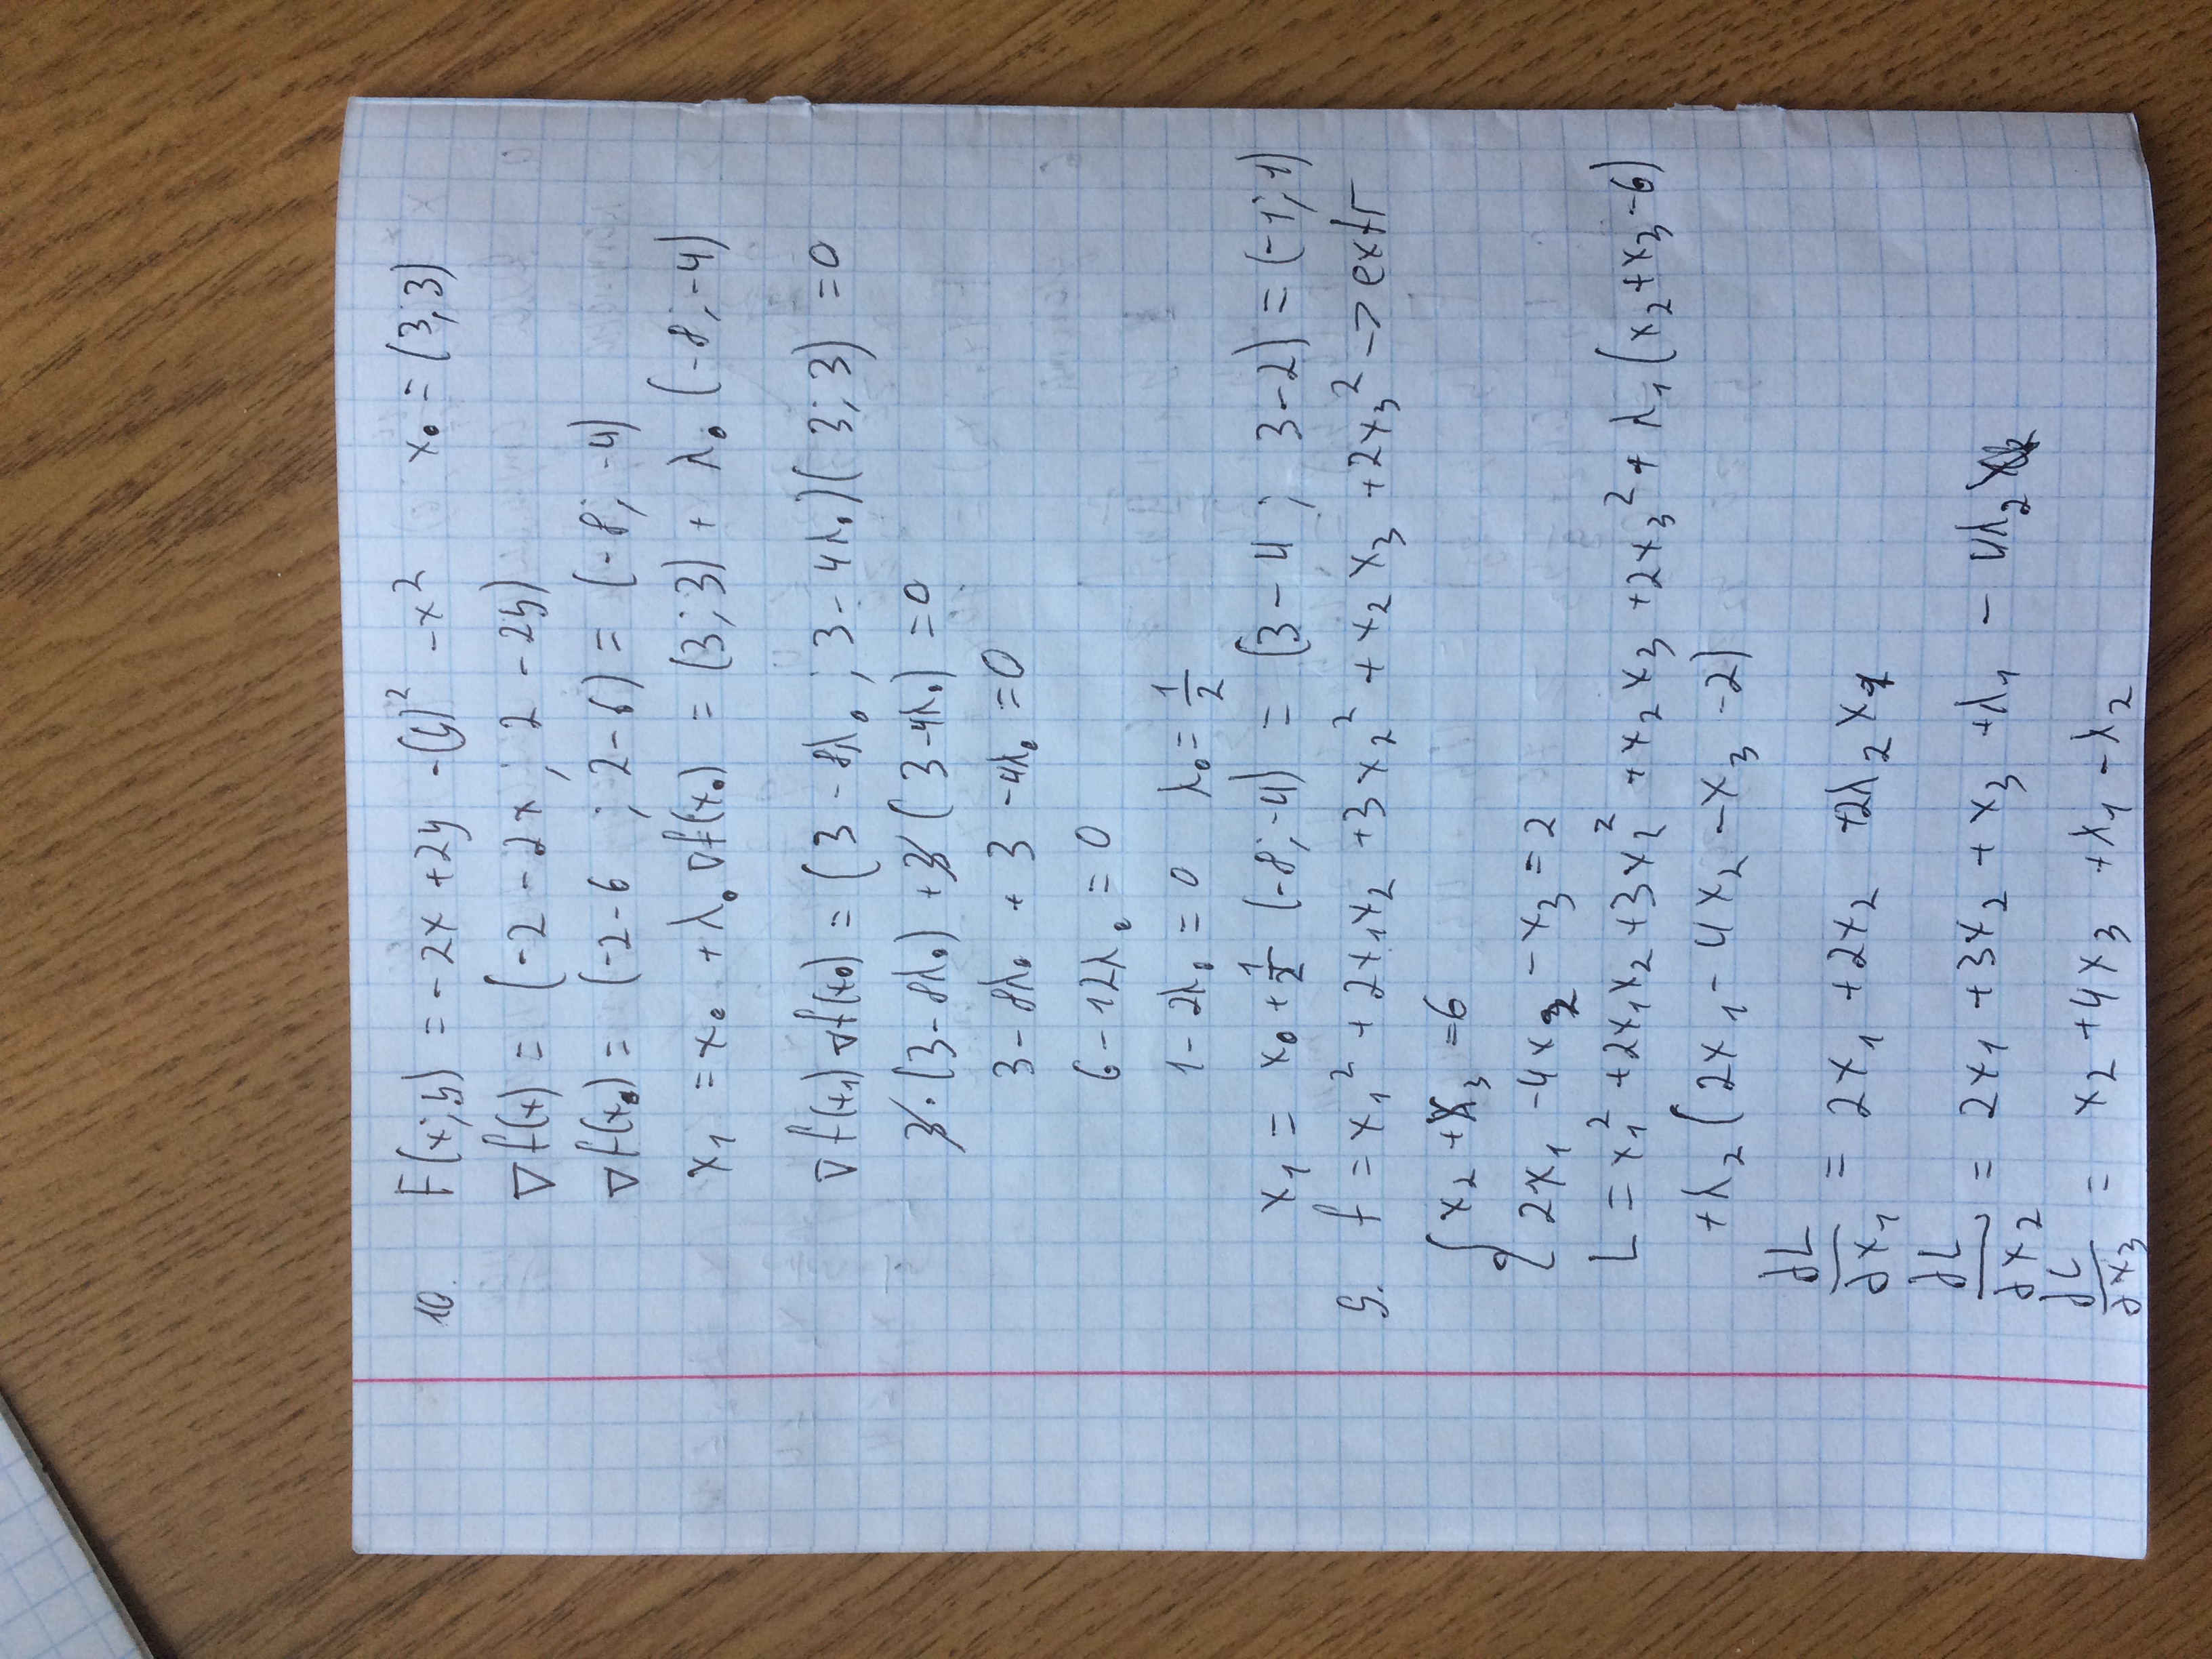 10. F(x;y) = -2x +2y -(y)² -x² x₀ = (3;3)
∇f(x) = (-2 - 2x ; 2 - 2y)
∇f(x₀) = (-2-6 ; 2-6) = (-8; -4)
x₁ = x₀ + λ₀ ∇f(x₀) = (3;3) + λ₀ (-8;-4)
∇f(x₁) ∇f(x₀) = (3 - 8λ₀ ; 3 - 4λ₀)(3;3) = 0
3·(3-8λ₀) + 3 (3-4λ₀) = 0
3 - 8λ₀ + 3 - 4λ₀ = 0
6 - 12λ₀ = 0
1 - 2λ₀ = 0 λ₀ = 1/2
x₁ = x₀ + 1/2 (-8;-4) = (3-4 ; 3-2) = (-1;1)
9. f = x₁² + 2x₁x₂ + 3x₂² + x₂x₃ + 2x₃² -> extr
{ x₂ + x₃ = 6
2x₁ - 4x₂ - x₃ = 2
L = x₁² + 2x₁x₂ + 3x₂² + x₂x₃ + 2x₃² + λ₁(x₂+x₃-6)
+ λ₂(2x₁ - 4x₂ - x₃ - 2)
dL/dx₁ = 2x₁ + 2x₂ + 2λ₂x₁
dL/dx₂ = 2x₁ + 3x₂ + x₃ + λ₁ - 4λ₂
dL/dx₃ = x₂ + 4x₃ + λ₁ - λ₂